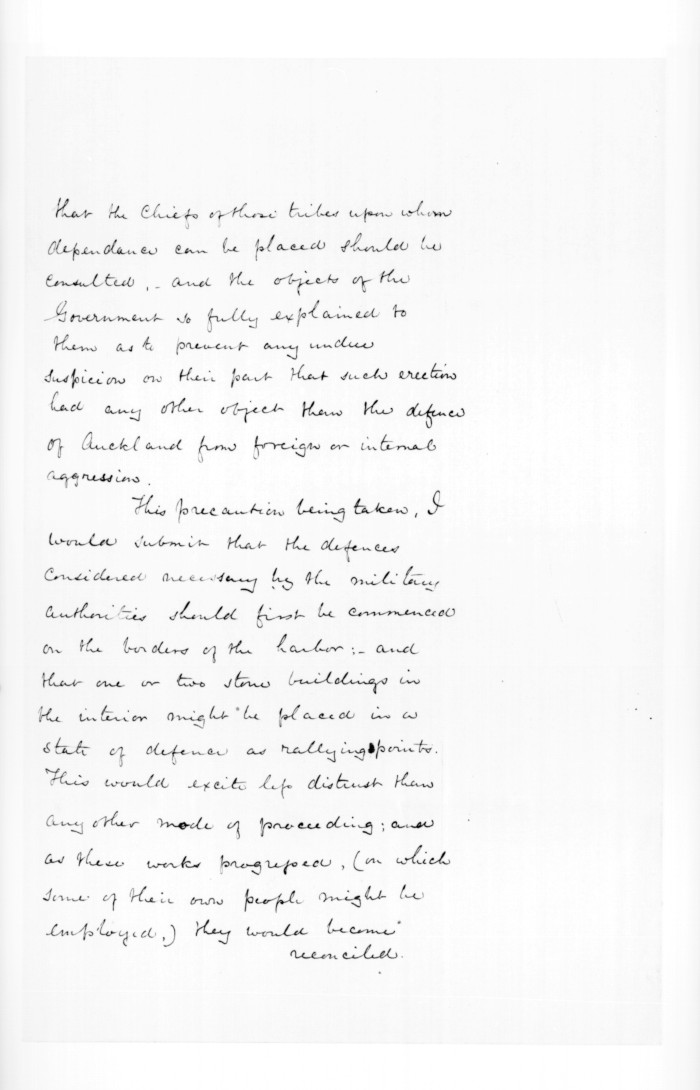 that the Chiefs of those tribes upon whom
dependance can be placed should be
consulted, - and the objects of the
Government so fully explained to
them as to prevent any undue
suspicion on their part that such erection
had any other object than the defence
of Auckland from foreign or internal
aggression.
This precaution being taken, I
would submit that the defences
considered necessary by the military
authorities should first be commenced
on the borders of the harbor: - and
that one or two stone buildings in
the interior might be placed in a
state of defence as rallying points.
This would excite less distrust than
any other mode of proceeding; and
as these works progressed, (on which
some of their own people might be
employed,) they would become
reconciled.